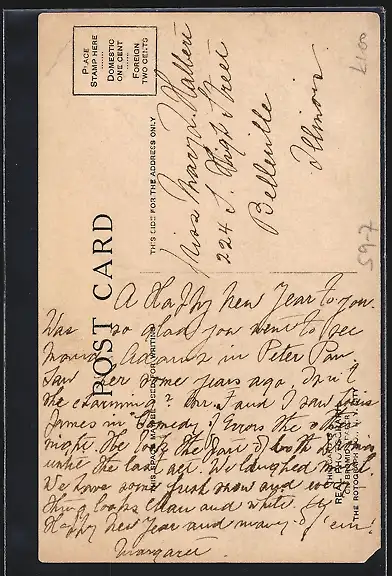 PLACE
STAMP HERE
DOMESTIC
ONE CENT
FOREIGN
TWO CENTS
POST CARD
THIS SIDE FOR THE ADDRESS ONLY
Miss Mary Halbert
224 S. High Street
Belleville
Illinois
£1.00
59-7
A Happy New Year to you.
Was so glad you went to see
Maud Adams in Peter Pan.
Saw her some years ago, isn't
she charming? Mr. F and I saw
James in "Comedy of Errors the other
night. He took the part of both
until the last act. We laughed
We have some fresh snow and every
thing looks clean and white.
Happy New Year and many of 'em!
Margaret.
THE ROTOGRAPH